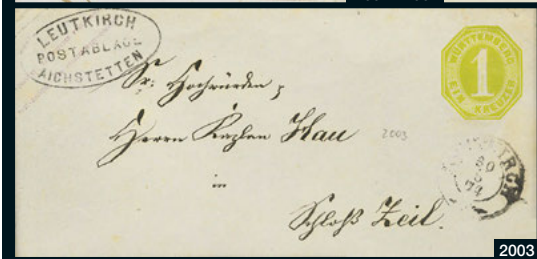 LEUTKIRCH
POSTABLAGE
AICHSTETTEN
WÜRTTEMBERG
1
EIN KREUZER
Sr: Hochwürden,
Herrn Kaplan Hau
2003
in
Schloß Zeil.
LEUTKIRCH
20
5
74
2003